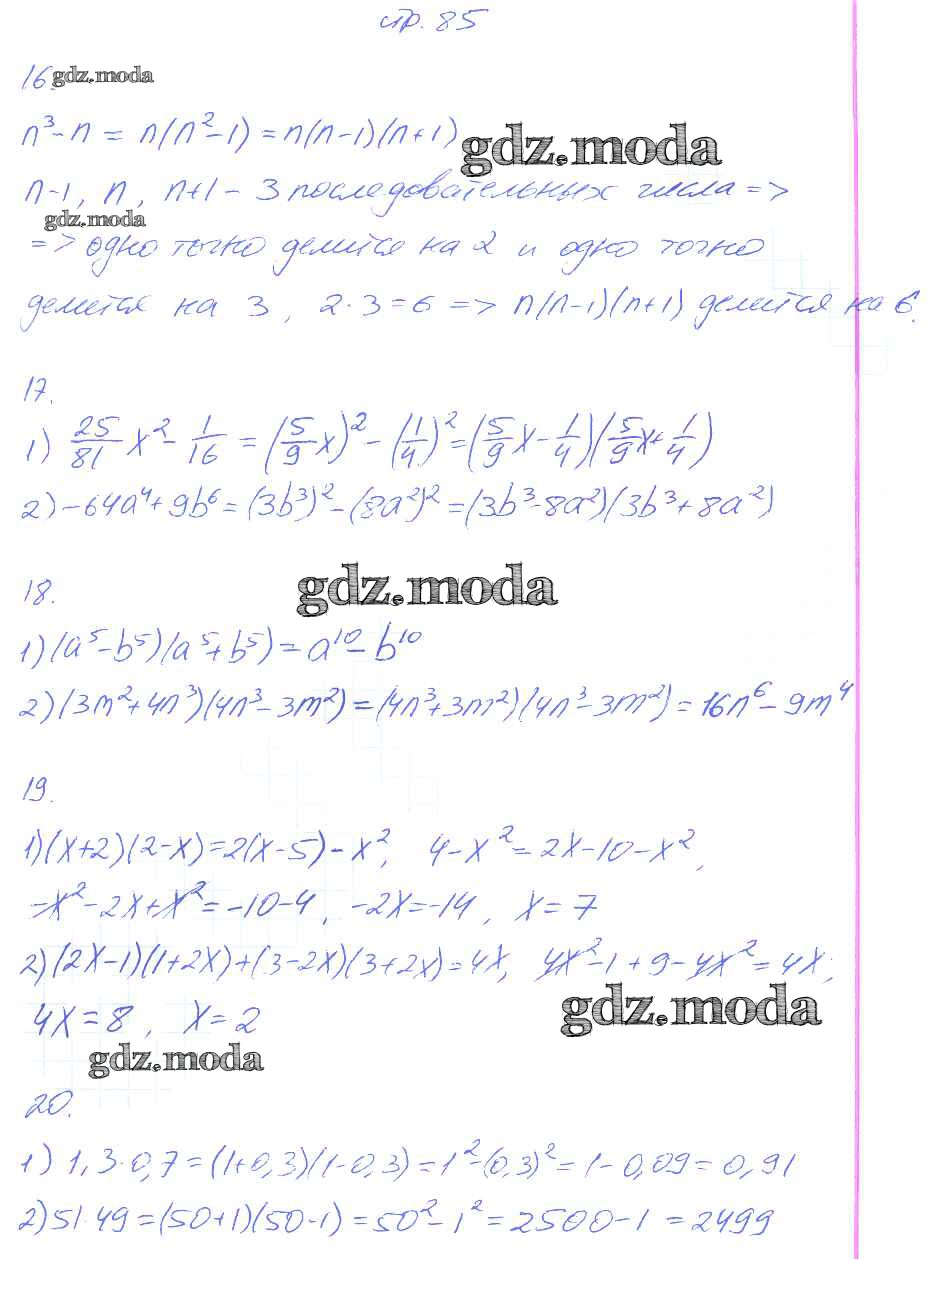 стр. 85
16. gdz.moda
n³-n = n(n²-1) = n(n-1)(n+1)
gdz.moda
n-1, n, n+1 - 3 последовательных числа =>
gdz.moda
=> одно точно делится на 2 и одно точно
делится на 3, 2·3=6 => n(n-1)(n+1) делится на 6.
17.
1) 25/81 x² - 1/16 = (5/9 x)² - (1/4)² = (5/9 x - 1/4)(5/9 x + 1/4)
2) -64a⁴+9b⁶ = (3b³)² - (8a²)² = (3b³-8a²)(3b³+8a²)
gdz.moda
18.
1) (a⁵-b⁵)(a⁵+b⁵) = a¹⁰-b¹⁰
2) (3m²+4n³)(4n³-3m²) = (4n³+3m²)(4n³-3m²) = 16n⁶-9m⁴
19.
1) (x+2)(2-x)=2(x-5)-x², 4-x²=2x-10-x²,
-x²-2x+x²=-10-4, -2x=-14, x=7
2) (2x-1)(1+2x)+(3-2x)(3+2x)=4x, 4x²-1+9-4x²=4x;
4x=8, x=2
gdz.moda
gdz.moda
20.
1) 1,3·0,7=(1+0,3)(1-0,3)=1²-(0,3)²=1-0,09=0,91
2) 51·49=(50+1)(50-1)=50²-1²=2500-1=2499